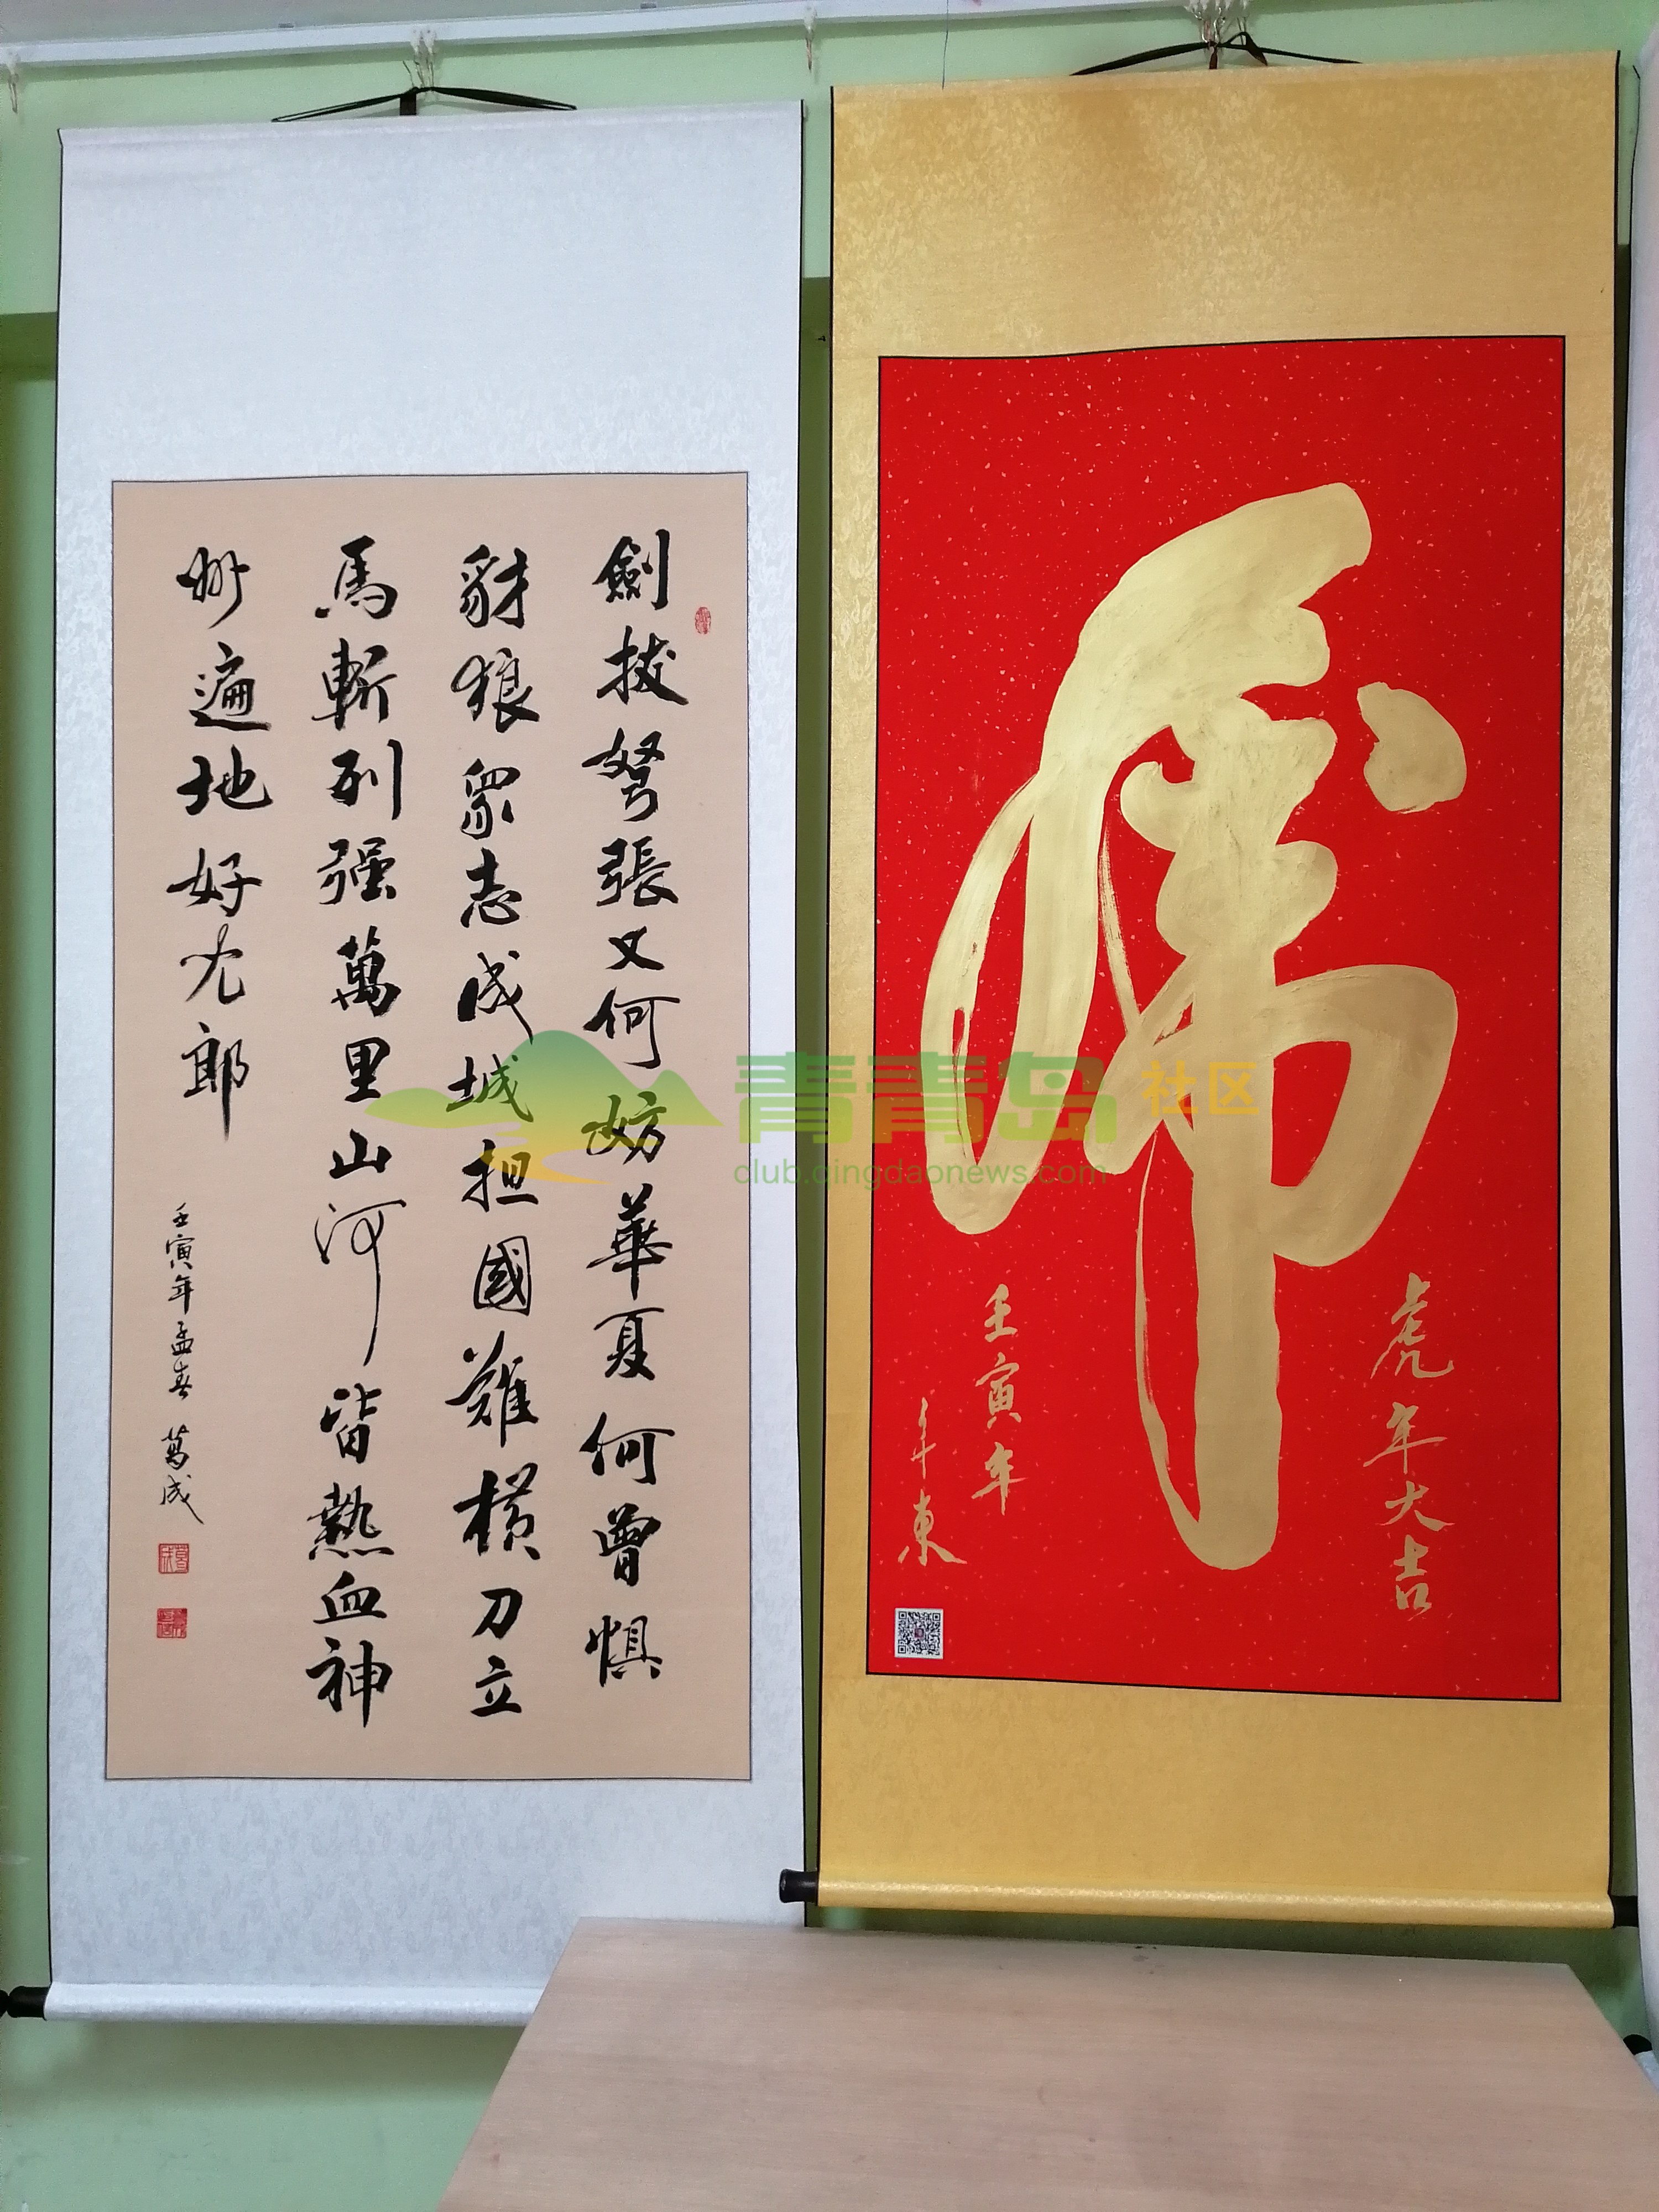 劍拔弩張又何妨華夏何曾懼
豺狼眾志成城担國難橫刀立
馬斬列强萬里山河皆熱血神
州遍地好兒郎
壬寅年孟春 葛成
虎
虎年大吉
壬寅年
東
青青岛社区
club.qingdaonews.com